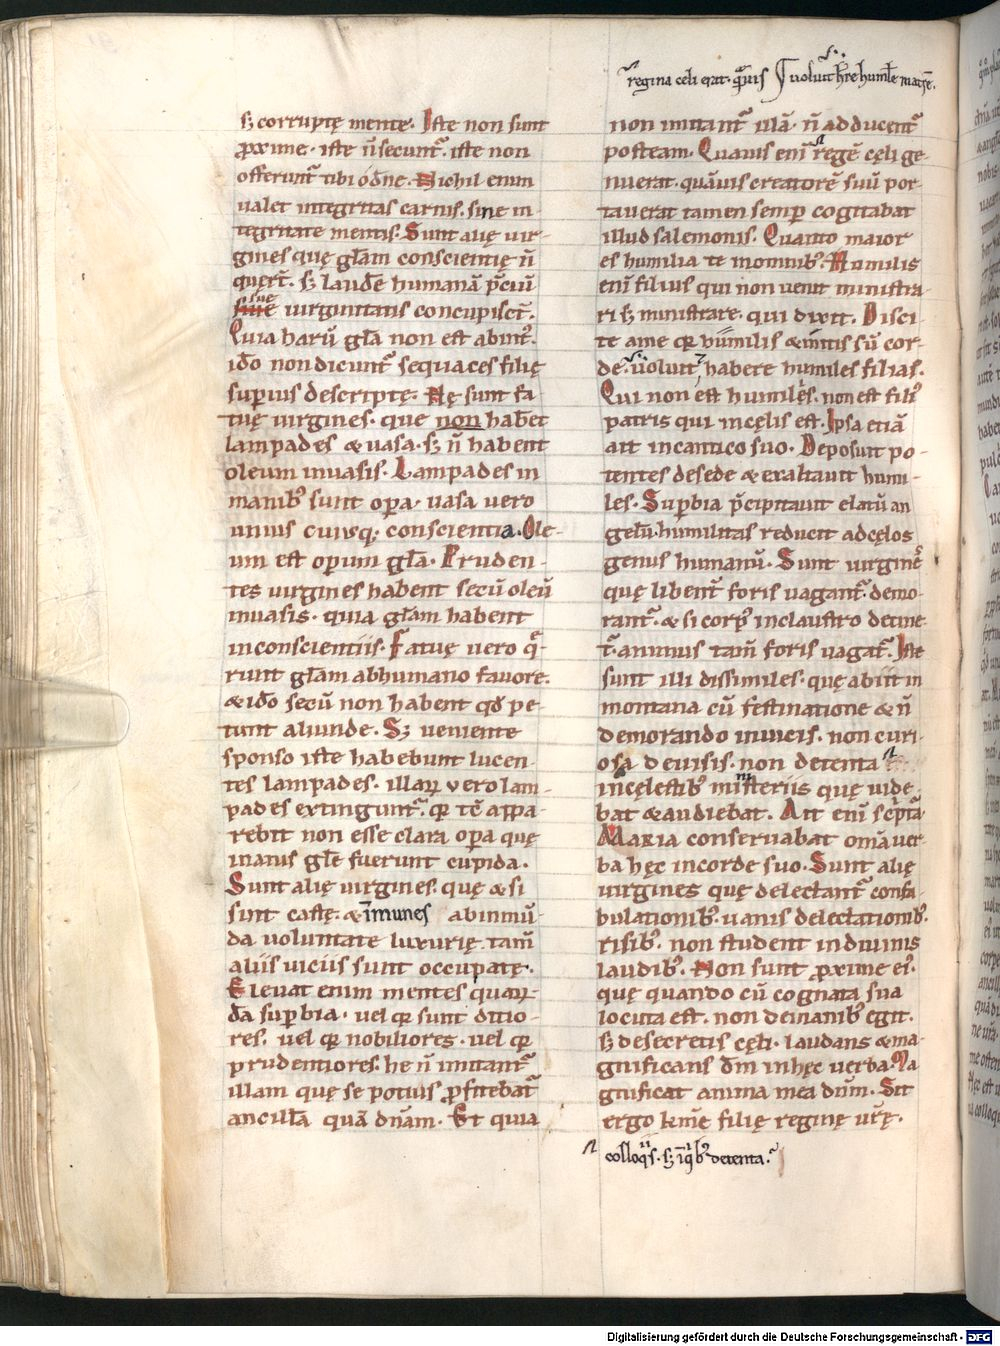 regina celi erat · quãuis
uoluit hr̃e humiles matrẽ.
sʒ corruptę mente. Iste non sunt
ꝓxime · iste ñ secunt᷑ · iste non
offerunt᷑ tibi odñe. Nichil enim
ualet integritas carnis. sine in-
tegritate mentis. Sunt alię uir-
gines quę glãm conscientię ñ
querũt. sʒ laudẽ humanã p̃ciũ
suę uirginitatis concupiscũt.
Quia harũ glã non est abint᷒.
ideo non dicunt᷑ sequaces filię
supius descriptę. Hę sunt fa-
tuę uirgines. que non habẽt
lampades & uasa. sʒ ñ habent
oleum inuasis. Lampades in
manib᷒ sunt opa. uasa uero
unius cuiusqꝫ conscientia. Ole-
um est opum glã. Pruden-
tes uirgines habent secũ oleũ
inuasis. quia glãm habent
inconscientiis. Fatuę uero q̃-
runt glãm abhumano fauore.
& ideo secũ non habent qd̃ pe-
tunt aliunde. Sʒ ueniente
sponso iste habebunt lucen-
tes lampades. illarꝝ vero lam-
pades extingunt᷑. qꝛ tc̃ appa-
rebit non esse clara opa quę
inanis glę fuerunt cupida.
Sunt alię uirgines. quę & si
sint castę. & ĩmunes abinmũ-
da uoluntate luxurię. tam̃
aliis uiciis sunt occupatę.
Eleuat enim mentes quarꝝ-
dã supbia. uel qꝛ sunt ditio-
res. uel qꝛ nobiliores. uel qꝛ
prudentiores. he ñ imitant᷑
illam quę se potius ꝓfitebat᷑
ancillã quã dñam. Et quia
non imitant᷑ illã. ñ adducent᷑
posteam. Quauis enĩ regẽ cęli ge-
nuerat. quãuis creatorẽ suũ por-
tauerat tamen semp cogitabat
illud salemonis. Quanto maior
es humilia te inomnib᷒. Humilis
enĩ filius qui non uenit ministra-
ri sʒ ministrare. qui dixit. Disci-
te ame qꝛ humilis & mitis sũ cor-
de. uoluit habere humiles filias.
Qui non est humiles. non est fili᷒
patris qui incęlis est. Ipsa etiã
ait incantico suo. Deposuit po-
tentes desede & exaltauit humi-
les. Supbia p̃cipitauit elatũ an-
gelũ. humilitas reducit adcęlos
genus humanũ. Sunt uirgines
quę libent᷑ foris uagant᷑. demo-
rant᷑. & si corp᷒ inclaustro detine-
t᷑. animus tam̃ foris uagat᷑. Iste
sunt illi dissimiles. quę abiit in
montana cũ festinatione & ñ
demorando inuicis. non curi-
osa deuisis. non detenta
incęlestib᷒ misteriis quę uide-
bat & audiebat. Ait enĩ scptã
Maria conseruabat omã uer-
ba hęc incorde suo. Sunt alię
uirgines quę delectant᷑ confa-
bulationib᷒. uanis delectationib᷒.
risib᷒. non student indiuinis
laudib᷒. Non sunt ꝓxime ei᷒.
quę quando cũ cognata sua
locuta est. non deinanib᷒ egit.
sʒ desecretis cęli. laudans & ma-
gnificans dm̃ inhęc uerba. Ma-
gnificat anima mea dñm. Sit
ergo kme filię reginę ur̃ę.
colloqiis. sʒ ĩqib᷒ detenta.
Digitalisierung gefördert durch die Deutsche Forschungsgemeinschaft - DFG